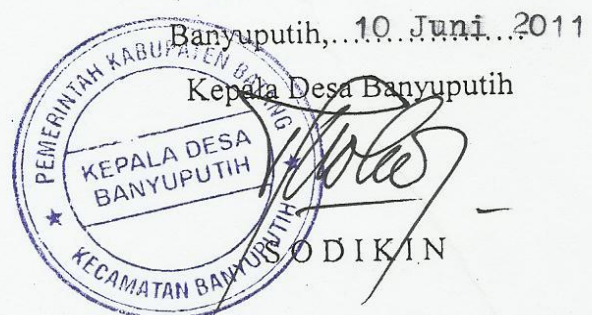 Banyuputih,..10 Juni 2011
Kepala Desa Banyuputih
PEMERINTAH KABUPATEN BATANG
KEPALA DESA
BANYUPUTIH
KECAMATAN BANYUPUTIH
SODIKIN